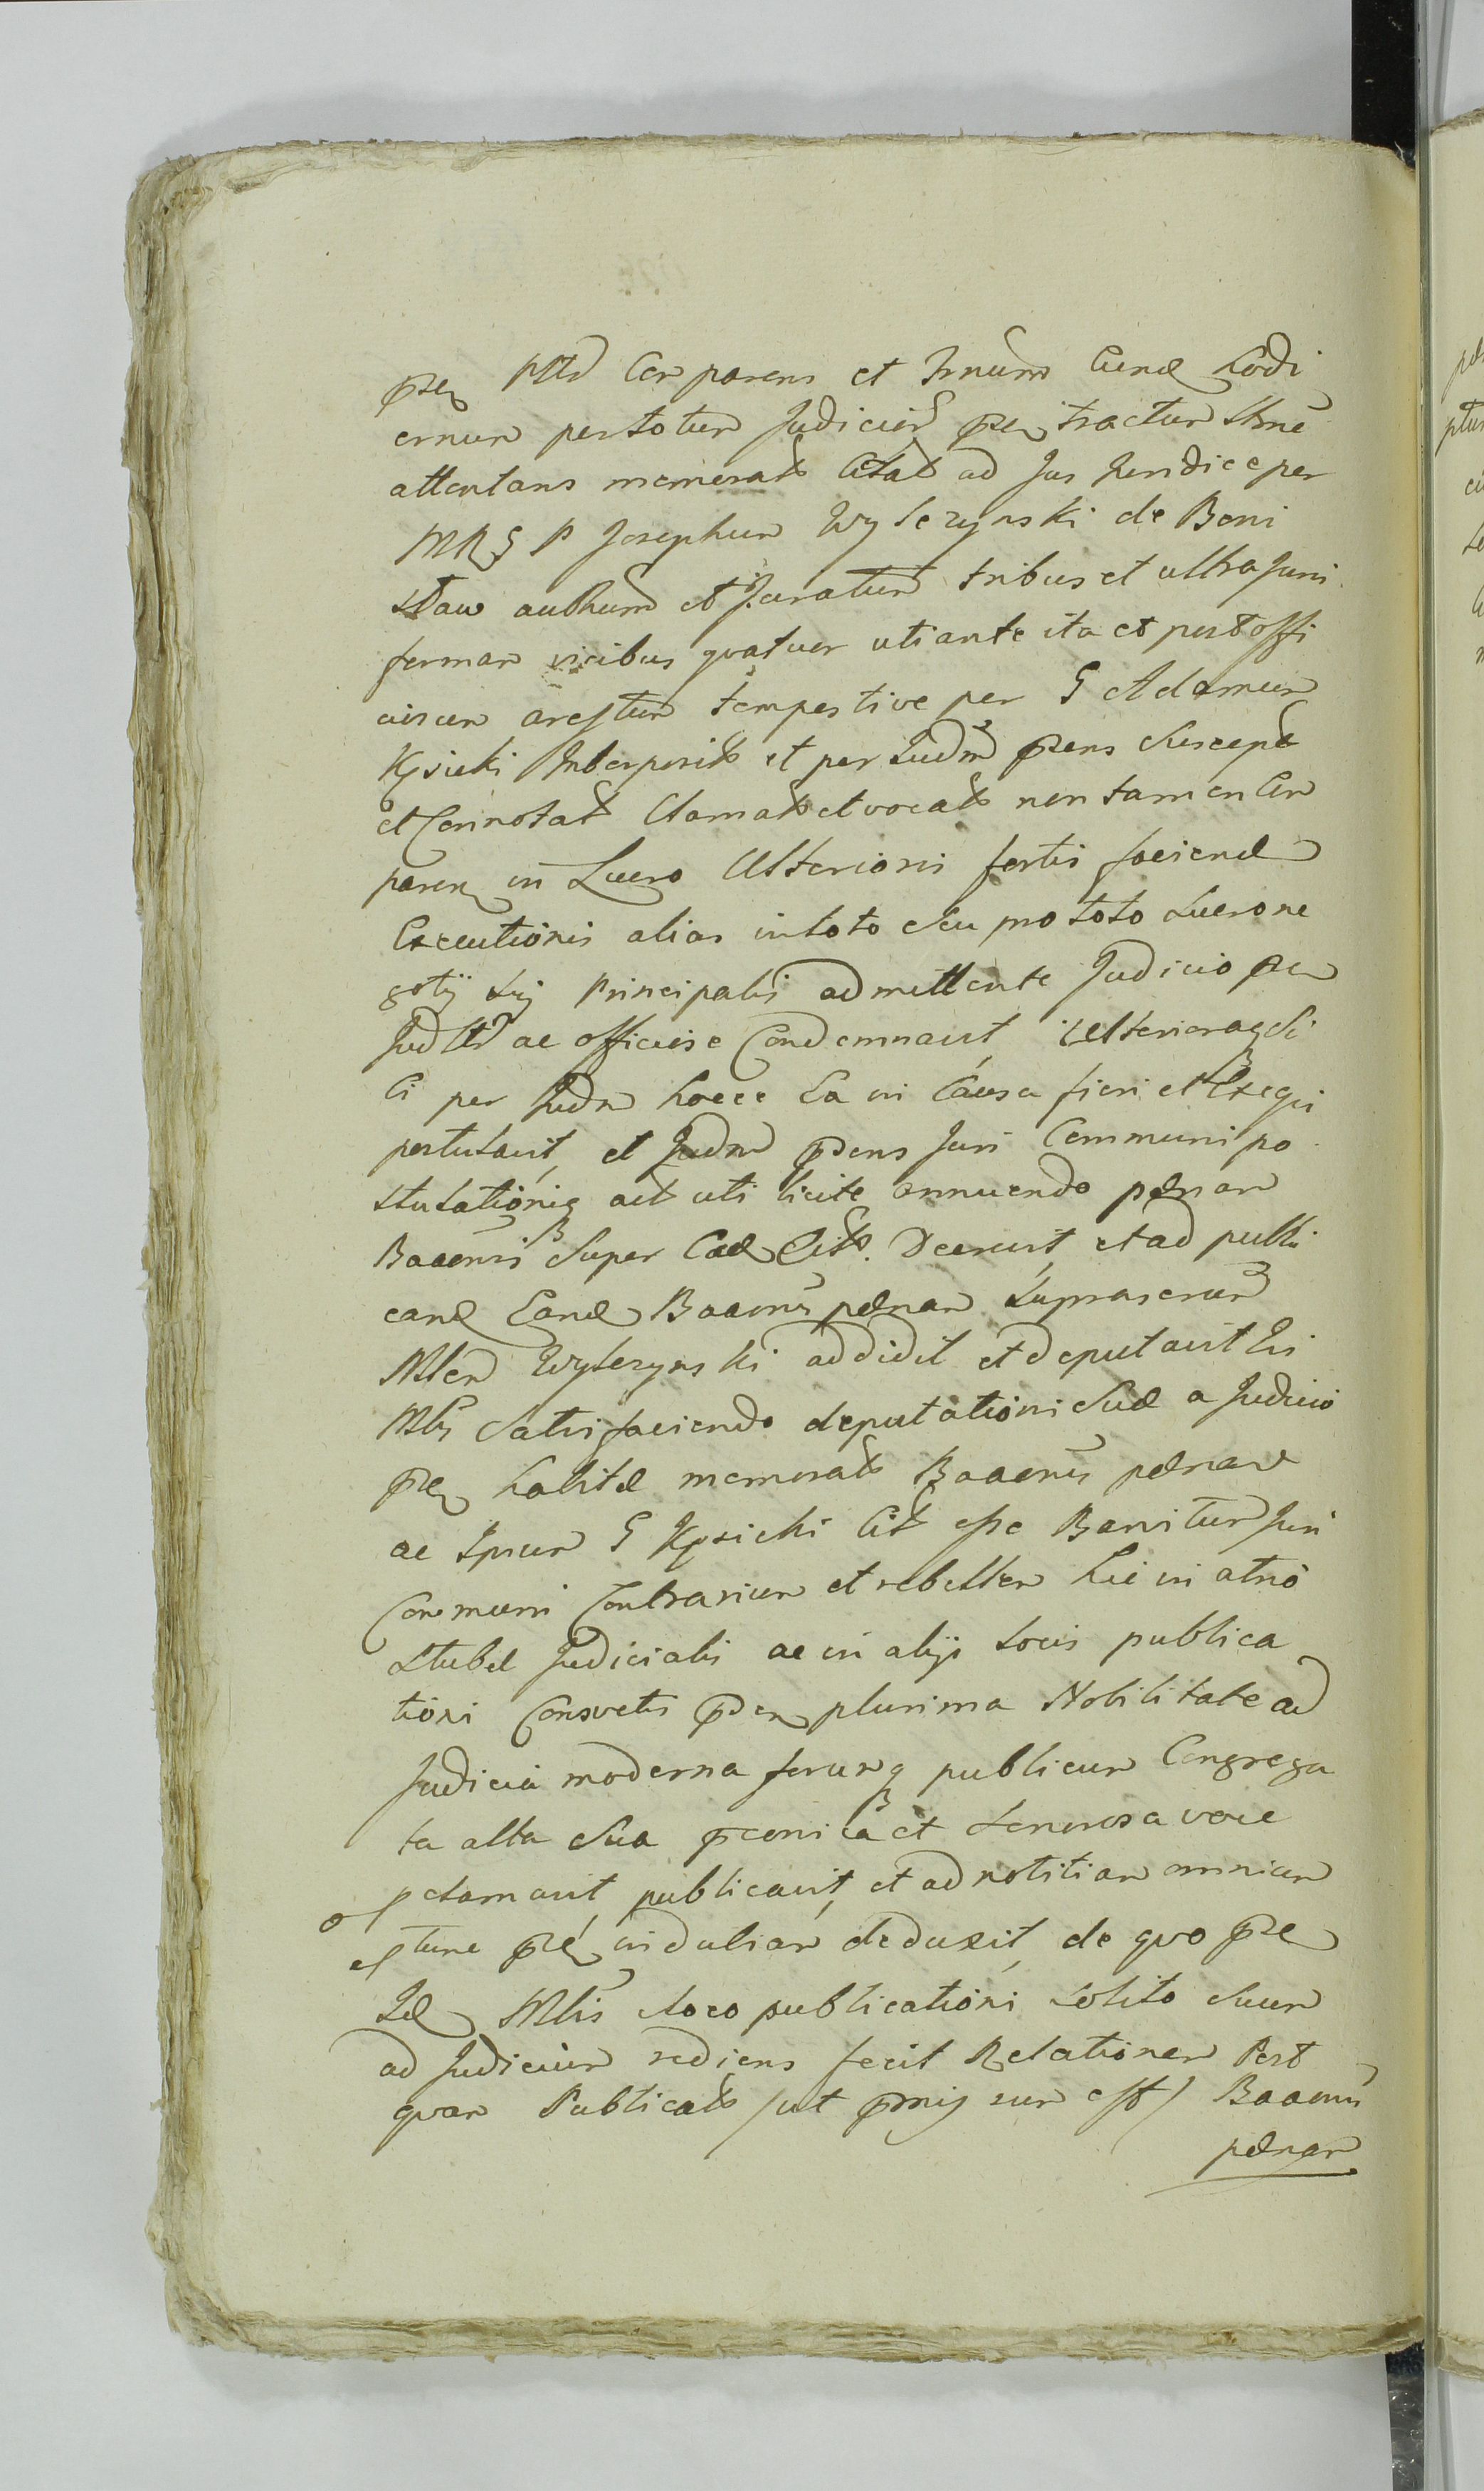 pn ptd Comparens et Trnum Eund hodi
ernum per totum Judicior pn tractum thne
attentans memorat Citat ad Jus Juridice per
MRG P Josephum Wylezynski de Beni
staw authum et Juratum tribus et ultra Juri
formam vicibus quatuor uti ante ita et post offi
cirum arestum tempestive per G Adamum
Kpicki Interposit et per Judm pns Suscept
et Connotat Clamat et vocat non tamen Com
paren in Lucro Ulterioris fortis faciend
Executionis alias in toto Seu pro toto Lucro ne
gotij Lrj Principalis admittente Judicio pn
Jud ltr ac officiose Condemnavit, Ulterioraq Si
bi per Judm hocce Ea in Causa fieri et Exeqvi
postulavit, et Judm pns Juri Communi po
stulationiq act uti licite annuendo pœnam
Baaonis Super Eod Cit. Decrevit, et ad publi
cand Eand Baaonis pœnam Suprascrum
Mlem Wylezynski addidit et deputavit Eis
Mlis Satisfaciendo deputationi Suæ a Judicio
pn habitæ memorat Baaonis pœnam
ac Ipsum G Kpicki Cit esse Banitum Juri
Communi Contrarium et rebellem hic in atrio
Stubæ Judicialis ac in alijs Locis publica
tioni Consvetis pn plurima Nobilitate ad
Judicia moderna forumq publicum Congrega
ta alta Sua pconica et Sonorosa voce
pclamavit, publicavit, et ad notitiam omnium
tunc pn induliam deduxit, de quo pn
Id Mlis loco publicationi Solito Suum
ad Judicium rediens fecit Relationem Post
quam Publicat /ut pmis sum est/ Baaonis
pœnam